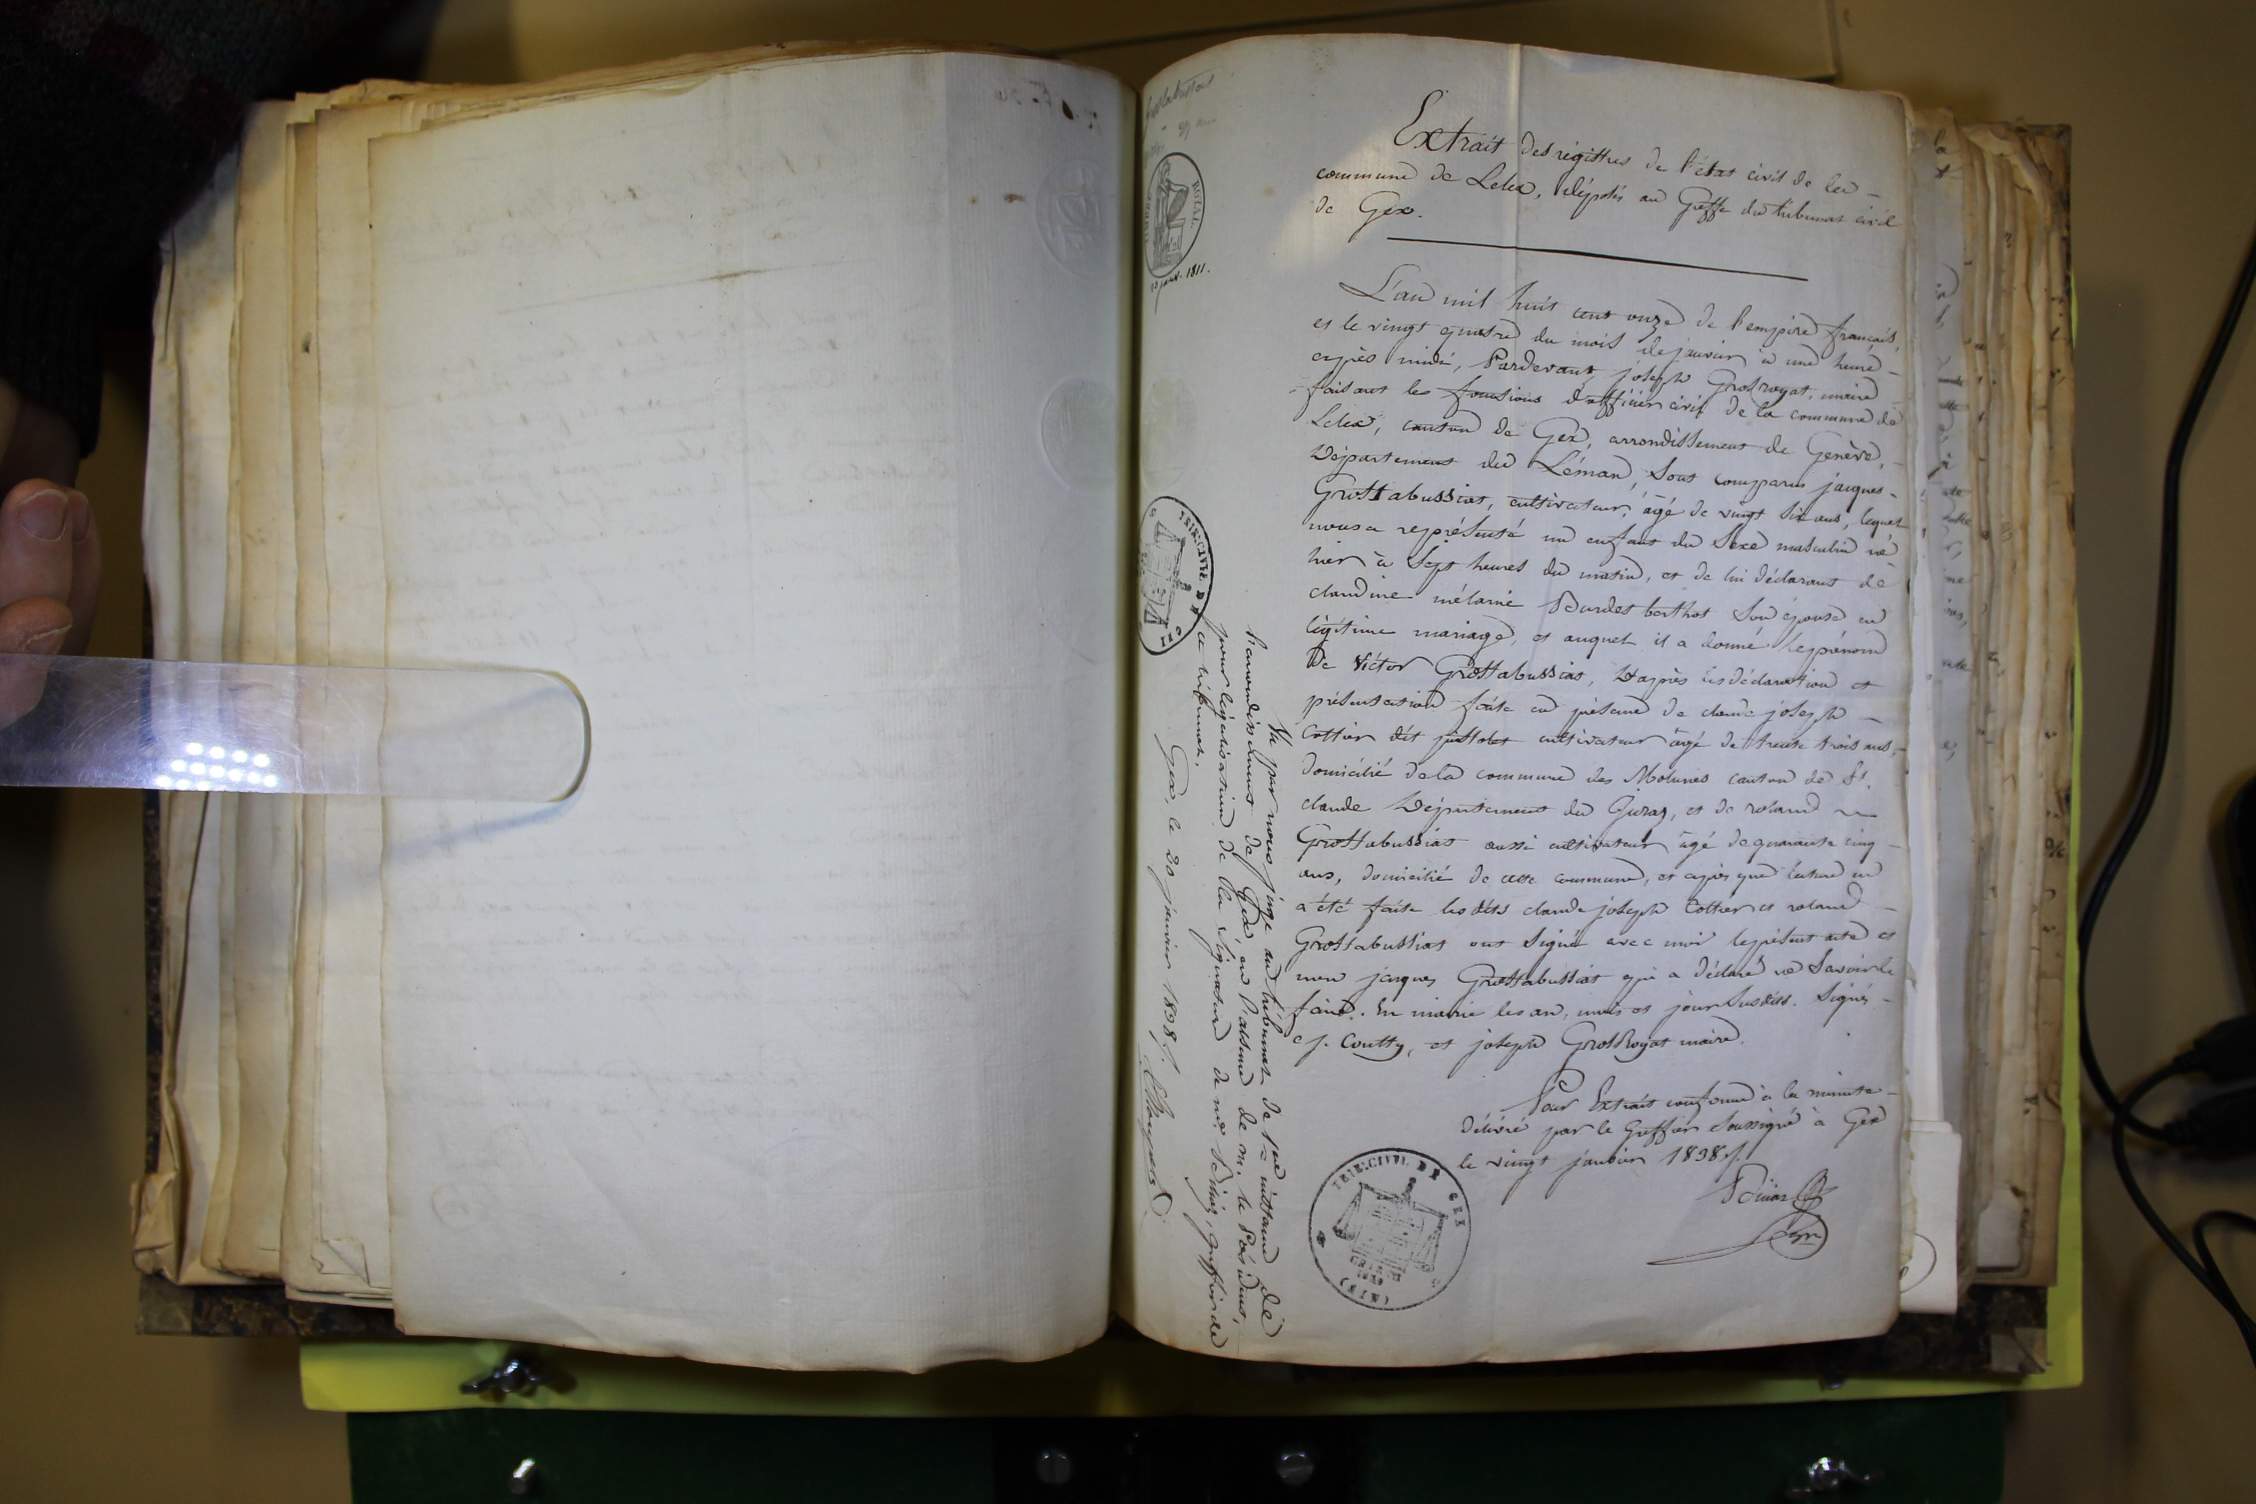 Extrait des régistres de l'état civil de la
commune de Lelex, déposés au Greffe du tribunal civil
de Gex.
10 janv. 1811.
L'an mil huit cent onze de l'empire français,
et le vingt quatre du mois de janvier à une heure
après midi, Pardevant joseph Grosroyat, maire
faisant les fonctions d'officier civil de la commune de
Lelex, canton de Gex, arrondissement de Genève,
Département du Léman, Sont comparus jacques
Grostabussiat, cultivateur, âgé de vingt six ans, lequel
nous a représenté un enfant du Sexe masculin né
hier à Sept heures du matin, et de lui déclarant et de
claudine mélanie Bourdet berthet Son épouse en
légitime mariage, et auquel il a donné le prénom
de Victor Grostabussiat, D'après les déclaration et
présentation faite en présence de claude joseph
Cottier dit cultivateur âgé de trente trois ans,
domicilié de la commune des Molunes canton de St.
claude Département du Jura, et de roland
Grostabussiat aussi cultivateur âgé de quarante cinq
ans, domicilié de cette commune, et après que lecture en
a été faite les dits claude joseph Cottier et roland
Grostabussiat ont Signé avec moi le présent acte et
non jacques Grostabussiat qui a déclaré ne Savoir le
faire. En mairie les an, mois et jour Susdits. Signés
c j. Coutty, et joseph GrosRoyat maire.
Pour Extrait conforme à la minute
Délivré par le Greffier Soussigné à Gex
le vingt janvier 1838.
TRIB. CIVIL DE GEX
(AIN)
Vu par nous juge au tribunal de 1re instance de
l'arrondissement de Gex, en l'absence de M. le Président,
pour légalisation de la Signature de mr. greffier de
ce tribunal.
Gex, le 20 janvier 1838.
TRIB. CIVIL DE GEX
TIMBRE ROYAL